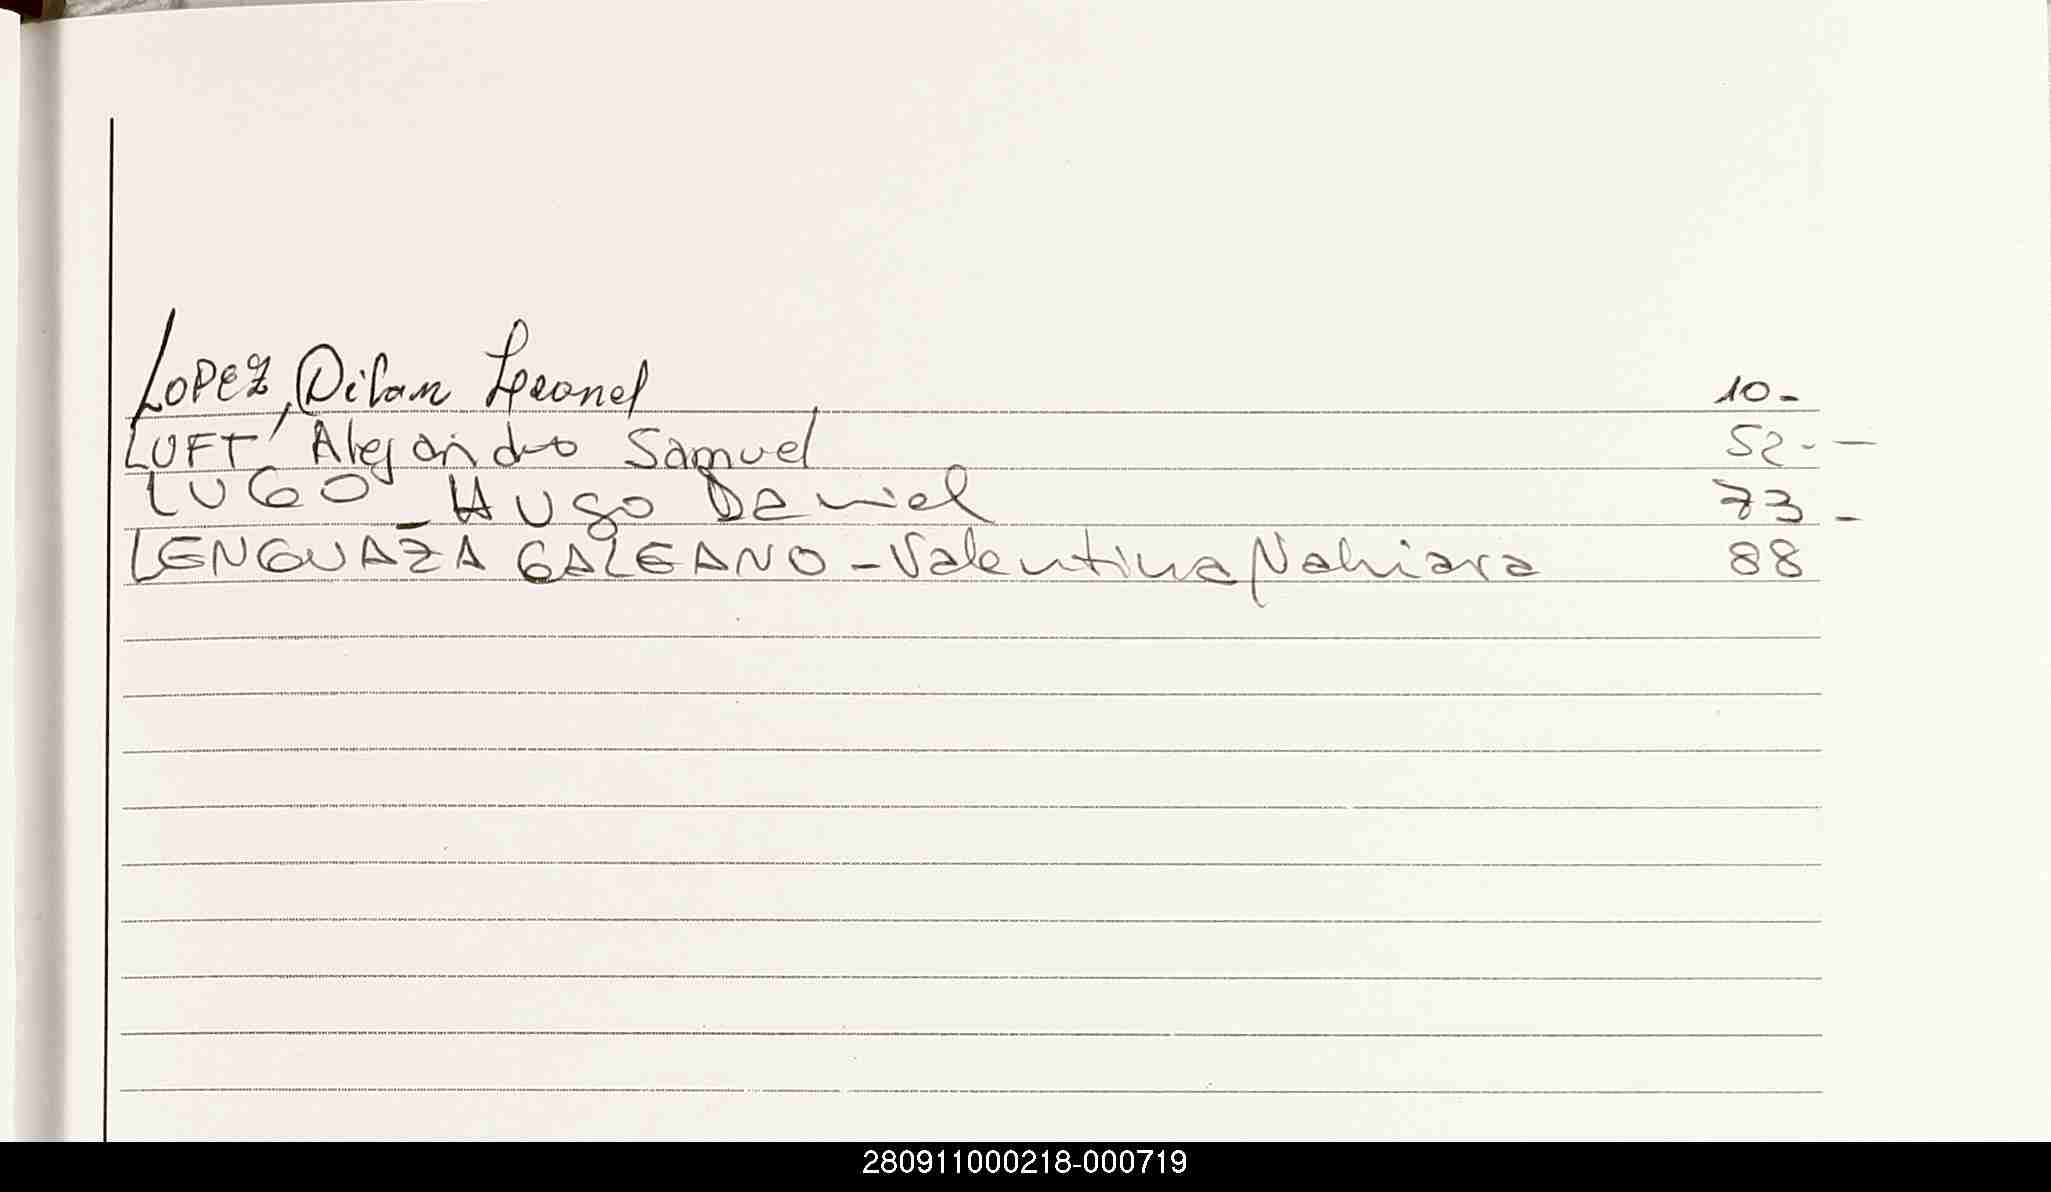 LOPEZ, Dilan Leonel 10-
LUFT, Alejandro Samuel 52- -
LUGO - HUGO Daniel 73 -
LENGUAZA GALEANO - Valentina Nahiara 88
280911000218-000719